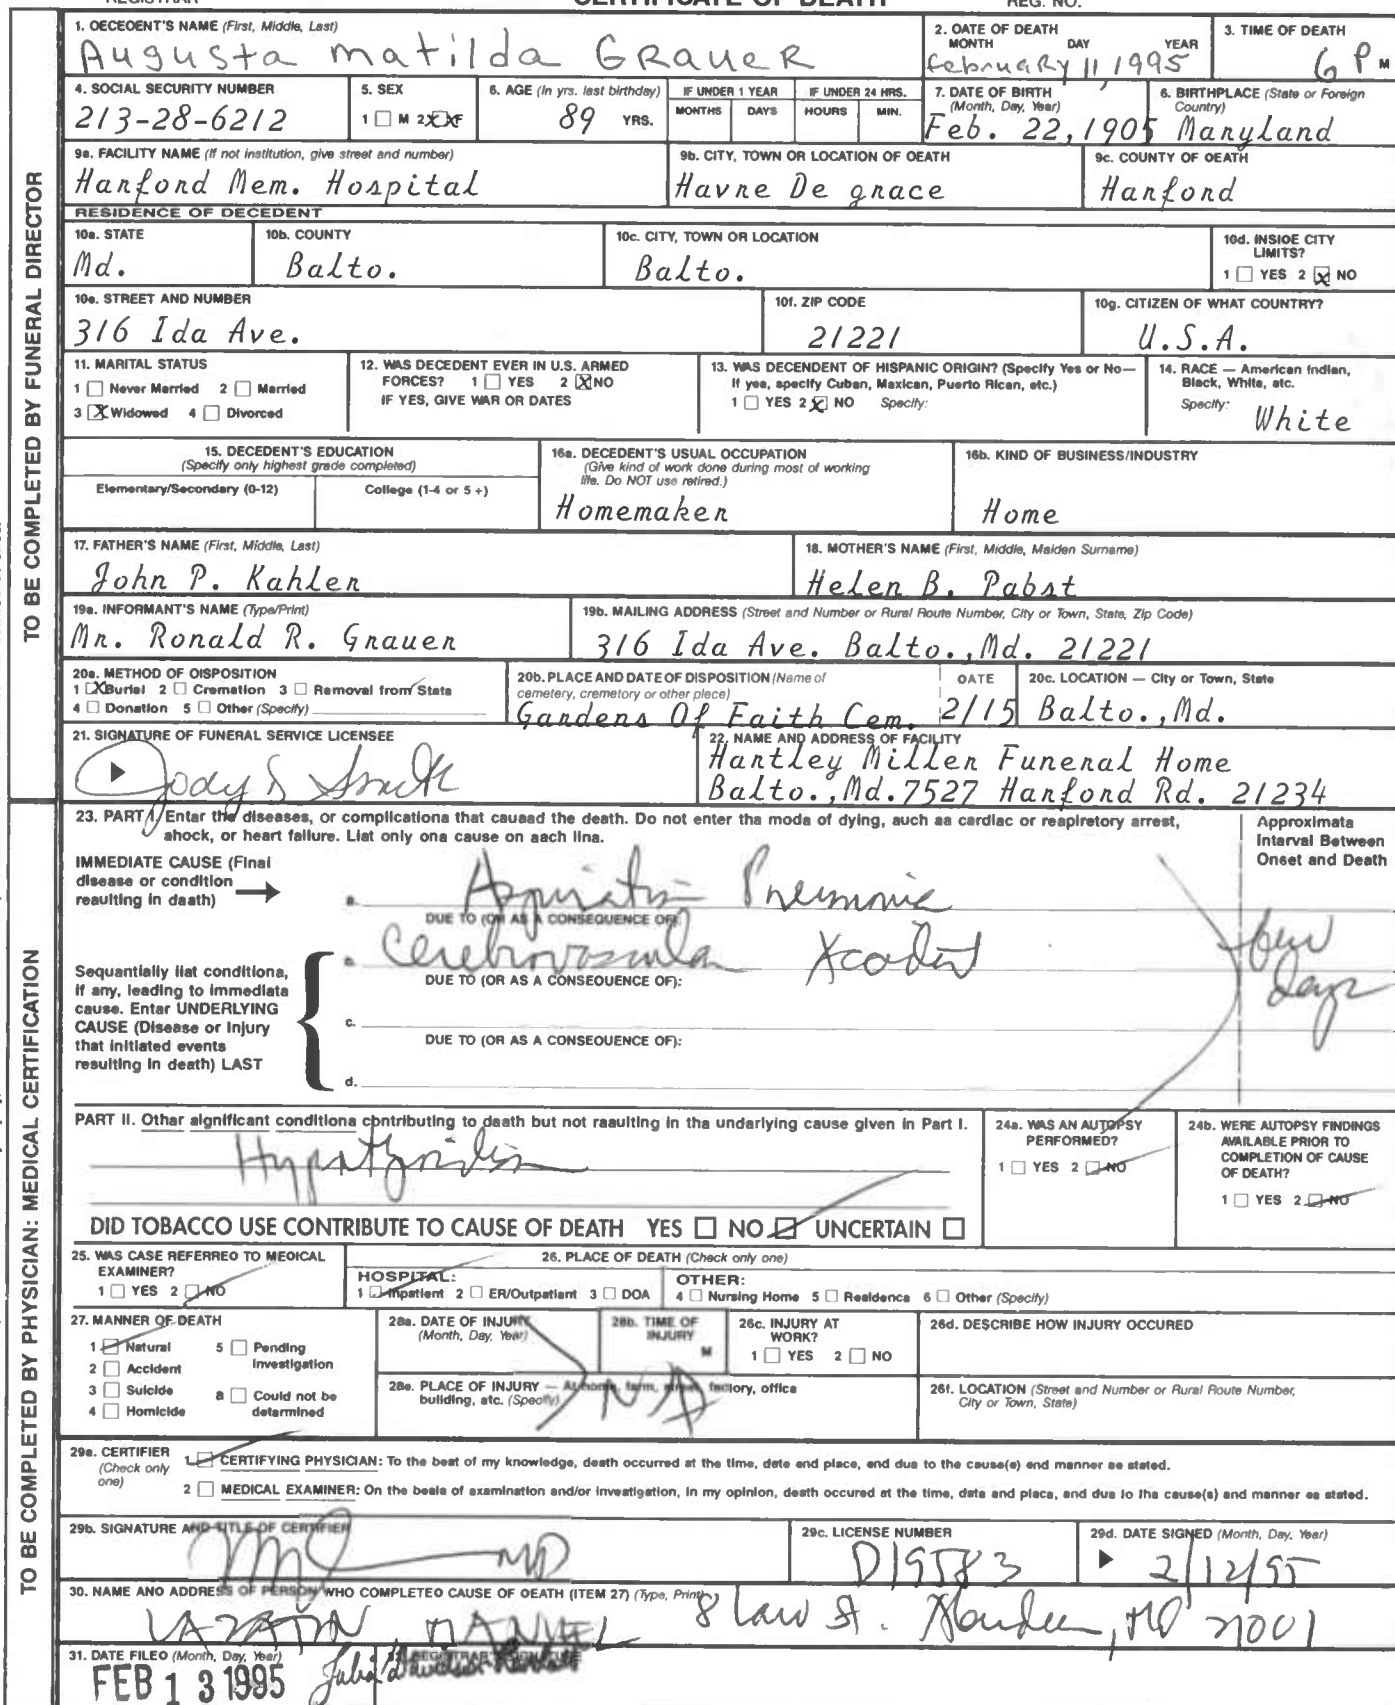 REGISTRAR CERTIFICATE OF DEATH REG. NO.
TO BE COMPLETED BY FUNERAL DIRECTOR
1. DECEDENT'S NAME (First, Middle, Last)
Augusta Matilda Grauer
2. DATE OF DEATH
MONTH DAY YEAR
February 11, 1995
3. TIME OF DEATH
6 P M
4. SOCIAL SECURITY NUMBER
213-28-6212
5. SEX
1 M 2 F
6. AGE (In yrs. last birthday)
89 YRS.
IF UNDER 1 YEAR
MONTHS DAYS
IF UNDER 24 HRS.
HOURS MIN.
7. DATE OF BIRTH
(Month, Day, Year)
Feb. 22, 1905
6. BIRTHPLACE (State or Foreign
Country)
Maryland
9a. FACILITY NAME (If not institution, give street and number)
Harford Mem. Hospital
9b. CITY, TOWN OR LOCATION OF DEATH
Havre De grace
9c. COUNTY OF DEATH
Harford
RESIDENCE OF DECEDENT
10a. STATE
Md.
10b. COUNTY
Balto.
10c. CITY, TOWN OR LOCATION
Balto.
10d. INSIDE CITY
LIMITS?
1 YES 2 X NO
10e. STREET AND NUMBER
316 Ida Ave.
10f. ZIP CODE
21221
10g. CITIZEN OF WHAT COUNTRY?
U.S.A.
11. MARITAL STATUS
1 Never Married 2 Married
3 X Widowed 4 Divorced
12. WAS DECEDENT EVER IN U.S. ARMED
FORCES? 1 YES 2 X NO
IF YES, GIVE WAR OR DATES
13. WAS DECENDENT OF HISPANIC ORIGIN? (Specify Yes or No—
If yes, specify Cuban, Mexican, Puerto Rican, etc.)
1 YES 2 X NO Specify:
14. RACE — American Indian,
Black, White, etc.
Specify: White
15. DECEDENT'S EDUCATION
(Specify only highest grade completed)
Elementary/Secondary (0-12) College (1-4 or 5 +)
16a. DECEDENT'S USUAL OCCUPATION
(Give kind of work done during most of working
life. Do NOT use retired.)
Homemaker
16b. KIND OF BUSINESS/INDUSTRY
Home
17. FATHER'S NAME (First, Middle, Last)
John P. Kahler
18. MOTHER'S NAME (First, Middle, Maiden Surname)
Helen B. Pabst
19a. INFORMANT'S NAME (Type/Print)
Mr. Ronald R. Grauer
19b. MAILING ADDRESS (Street and Number or Rural Route Number, City or Town, State, Zip Code)
316 Ida Ave. Balto., Md. 21221
20a. METHOD OF DISPOSITION
1 X Burial 2 Cremation 3 Removal from State
4 Donation 5 Other (Specify)
20b. PLACE AND DATE OF DISPOSITION (Name of
cemetery, crematory or other place)
Gardens Of Faith Cem.
DATE
2/15
20c. LOCATION — City or Town, State
Balto., Md.
21. SIGNATURE OF FUNERAL SERVICE LICENSEE
Jody S Smith
22. NAME AND ADDRESS OF FACILITY
Hartley Miller Funeral Home
Balto., Md. 7527 Harford Rd. 21234
TO BE COMPLETED BY PHYSICIAN: MEDICAL CERTIFICATION
23. PART I. Enter the diseases, or complications that caused the death. Do not enter the mode of dying, such as cardiac or respiratory arrest,
shock, or heart failure. List only one cause on each line.
Approximate
Interval Between
Onset and Death
IMMEDIATE CAUSE (Final
disease or condition
resulting in death)
a. Aspiration Pneumonia
DUE TO (OR AS A CONSEQUENCE OF):
Cerebrovascular Accident
few
days
DUE TO (OR AS A CONSEQUENCE OF):
Sequentially list conditions,
if any, leading to immediate
cause. Enter UNDERLYING
CAUSE (Disease or injury
that initiated events
resulting in death) LAST
c.
DUE TO (OR AS A CONSEQUENCE OF):
d.
PART II. Other significant conditions contributing to death but not resulting in the underlying cause given in Part I.
Hypothyroidism
24a. WAS AN AUTOPSY
PERFORMED?
1 YES 2 NO
24b. WERE AUTOPSY FINDINGS
AVAILABLE PRIOR TO
COMPLETION OF CAUSE
OF DEATH?
1 YES 2 NO
DID TOBACCO USE CONTRIBUTE TO CAUSE OF DEATH YES NO UNCERTAIN
25. WAS CASE REFERRED TO MEDICAL
EXAMINER?
1 YES 2 NO
26. PLACE OF DEATH (Check only one)
HOSPITAL:
1 Inpatient 2 ER/Outpatient 3 DOA
OTHER:
4 Nursing Home 5 Residence 6 Other (Specify)
27. MANNER OF DEATH
1 Natural 5 Pending
Investigation
2 Accident
3 Suicide 8 Could not be
determined
4 Homicide
28a. DATE OF INJURY
(Month, Day, Year)
28b. TIME OF
INJURY
M
26c. INJURY AT
WORK?
1 YES 2 NO
26d. DESCRIBE HOW INJURY OCCURED
28e. PLACE OF INJURY — At home, farm, street, factory, office
building, etc. (Specify)
N/A
26f. LOCATION (Street and Number or Rural Route Number,
City or Town, State)
29a. CERTIFIER
(Check only
one)
1 CERTIFYING PHYSICIAN: To the best of my knowledge, death occurred at the time, date and place, and due to the cause(s) and manner as stated.
2 MEDICAL EXAMINER: On the basis of examination and/or investigation, in my opinion, death occured at the time, date and place, and due to the cause(s) and manner as stated.
29b. SIGNATURE AND TITLE OF CERTIFIER
MD
29c. LICENSE NUMBER
D19583
29d. DATE SIGNED (Month, Day, Year)
2/12/95
30. NAME AND ADDRESS OF PERSON WHO COMPLETED CAUSE OF DEATH (ITEM 27) (Type, Print)
LAZATIN, MANUEL 8 Law St. Aberdeen, MD 21001
31. DATE FILED (Month, Day, Year)
FEB 13 1995